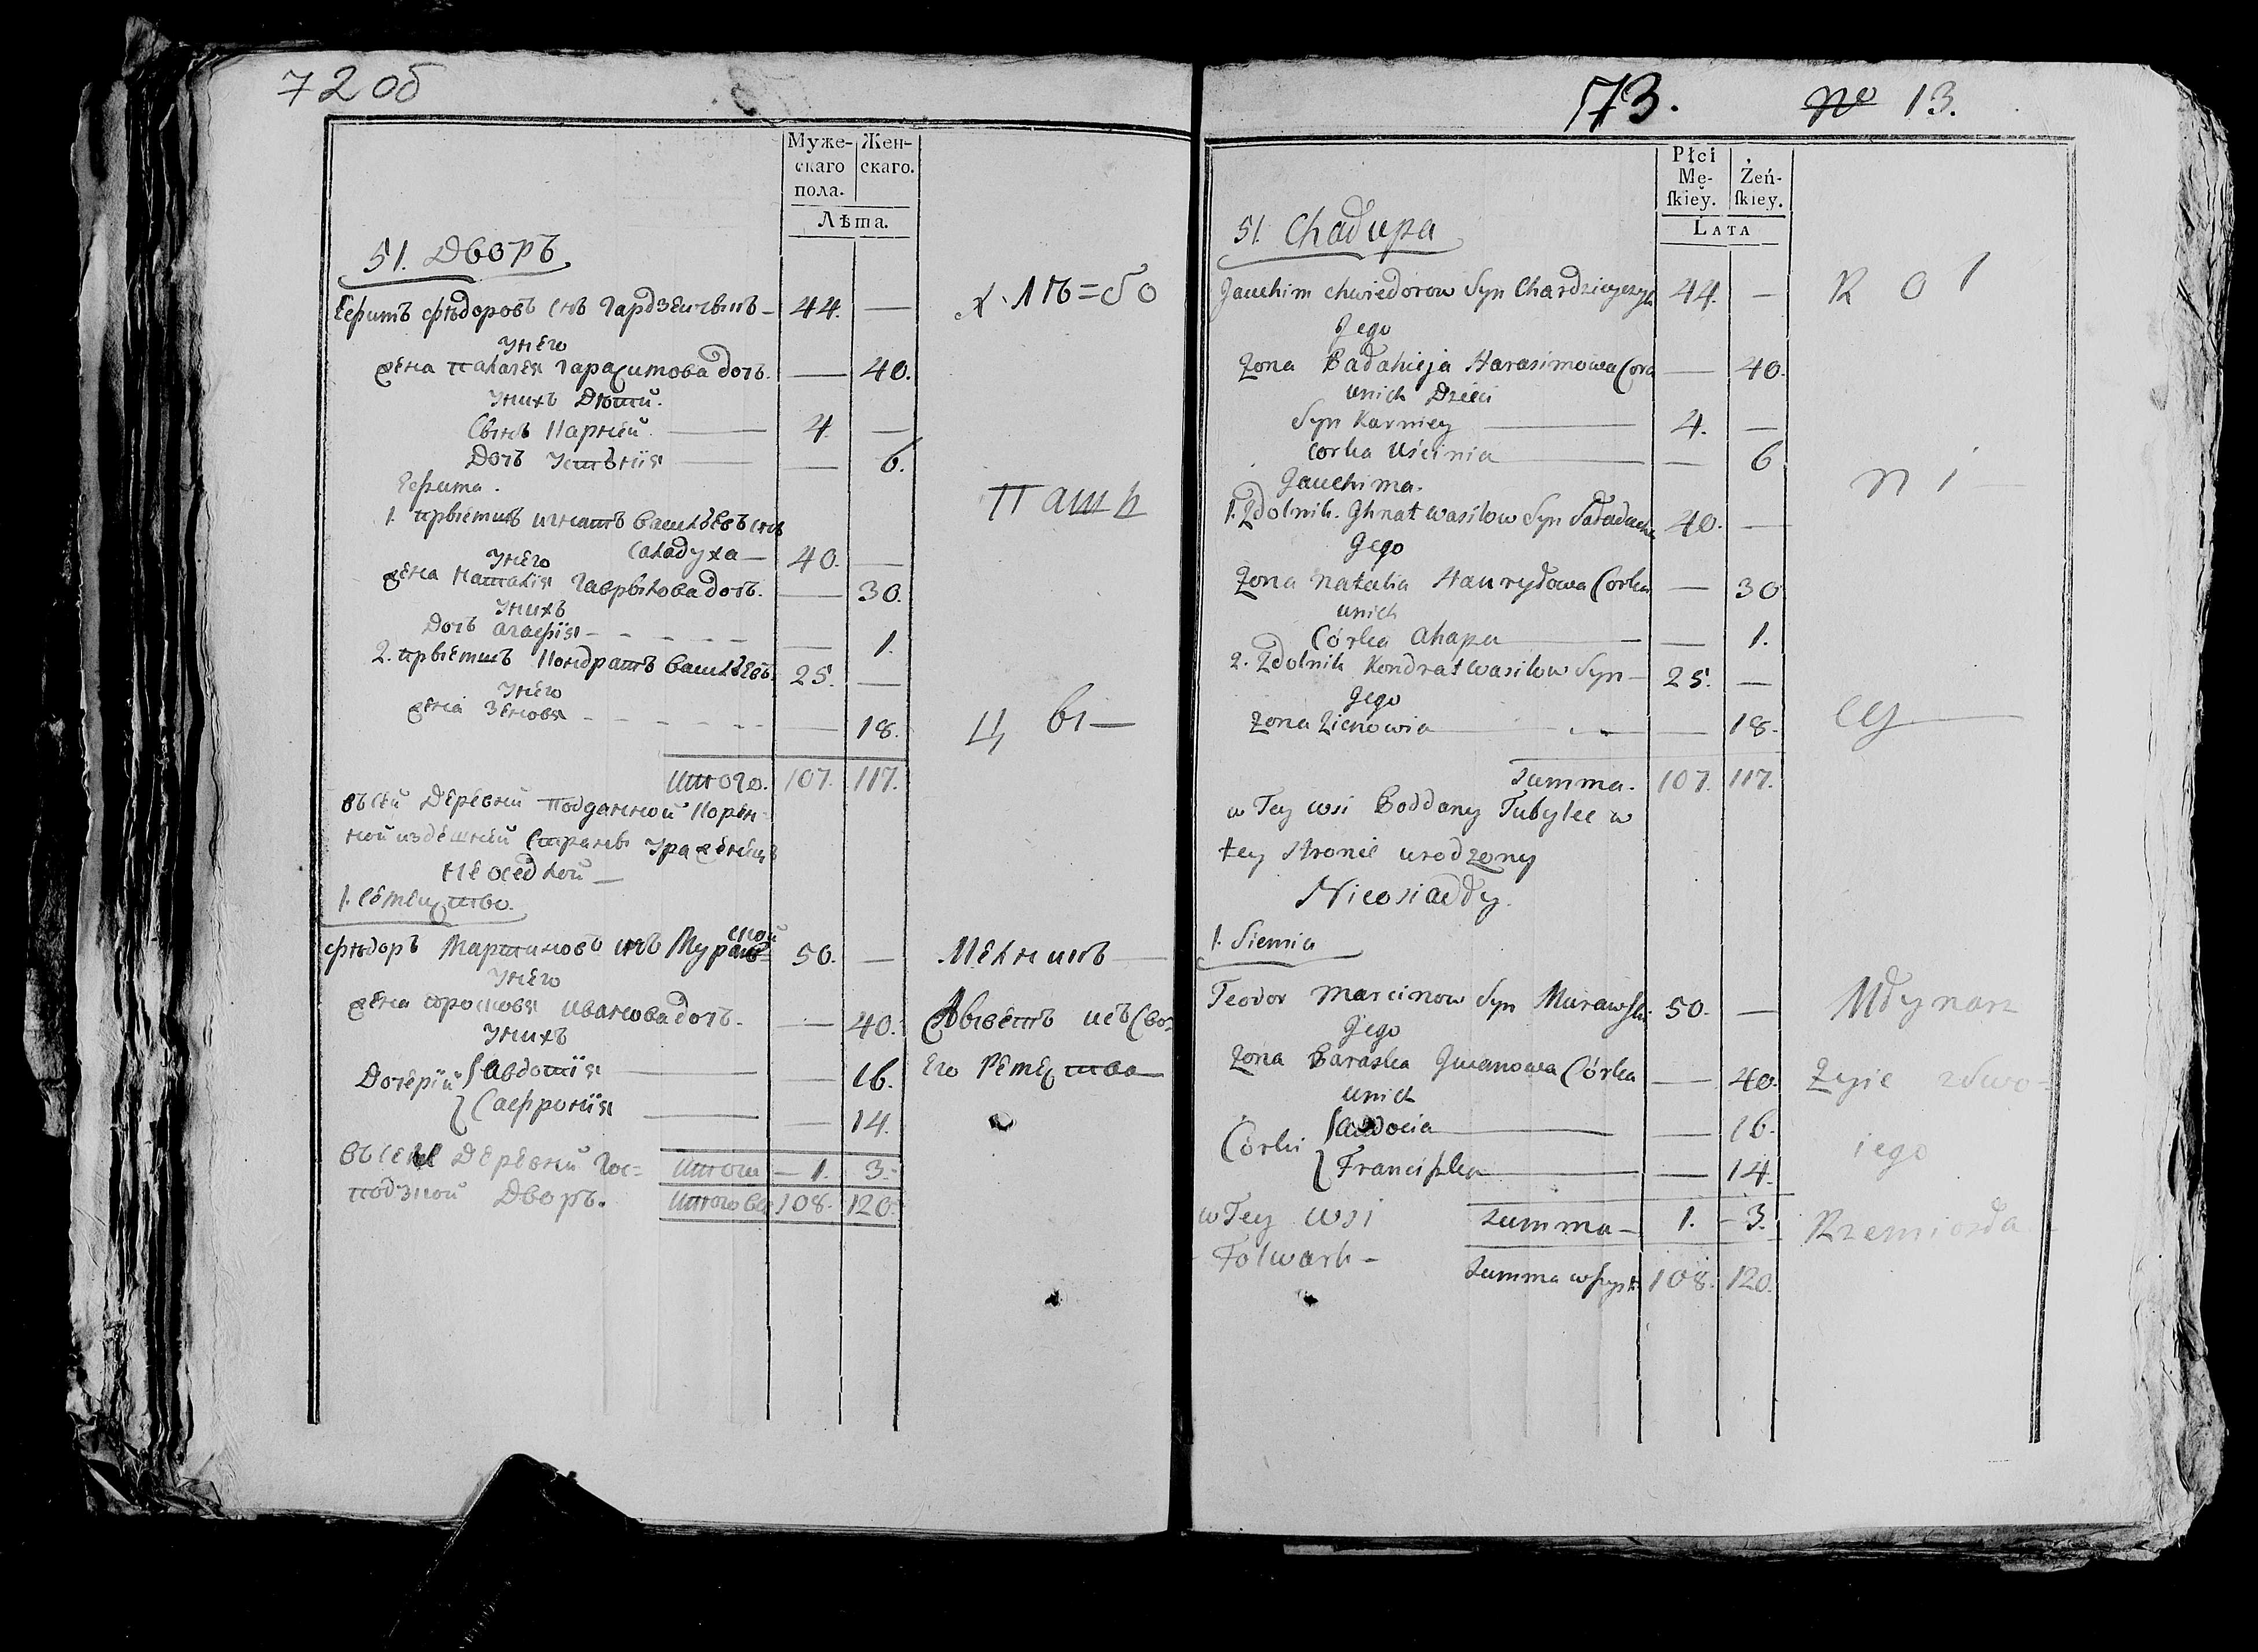 72 об
Муже-
скаго
пола.
Жен-
скаго.
Лѣта.
51. Дворъ
Ефимъ фѣдоровъ снъ Гардзеичвинъ - 44. —
х. лѣ=бо
Унего
жена Палагея Гарасимова дочь. — 40.
Унихъ Дѣти.
Сынъ Карнѣй — 4. —
Дочь Устѣнїя — 6.
Ефима.
паш
1. прыемшъ Игнатъ Васильевъ снъ
Саладуха — 40. —
Унего
жена Наталїя Гаврылова дочь. — 30.
Унихъ
Дочь агафїя — 1.
2. прыемшъ Кондратъ Васильевъ. 25. —
Унего
жена Зеновя — 18.
ц вı —
Итого. 107. 117.
въ сей Деревни подданной Корен-
ной издешней Стране Урожденецъ
Неоседлой —
1. Семейство.
фѣдоръ Мартиновъ снъ Мурав=
ской 50. —
Мелникъ —
Унего
жена просковя Иванова дочь. — 40.
Жыветъ исъ Сво-
Унихъ
его Ремества
Дочерїй Авдотїя — 16.
Сафронїя — 14.
въ сей Деревни Гос=
подзкой Дворъ.
Итого — 1. 3.
Итого все 108. 120.
73. No 13.
Płci
Mę-
ſkiey.
Żeń-
ſkiey.
LATA
51. Chałupa
Jauchim Chwiedorow Syn Chardzieyczyk 44. —
R o l
Jego
Żona Pałahieja Harasimowa Cora — 40.
unich Dzieci
Syn Karniey — 4. —
Corka Uścinia — 6
Jauchima.
n i —
1. Zdolnik. Ghnat Wasilow Syn Saładucha 40. —
Jego
Żona Natalia Hauryłowa Corka — 30
unich
Córka Ahapa — 1.
2. Zdolnik Kondrat Wasilow Syn — 25. —
Jego
Żona Zienowia — 18.
cy —
Summa. 107. 117.
w Tey wsi Poddany Tubylec w
tey stronie urodzony
Nieosiadły.
1. Siemia
Teodor Marcinow Syn Murawſki 50. —
Młynarz
Jego
Żona Paraska Jwanowa Córka — 40.
Żyie zswo=
unich
Córki Audocia — 16.
iego
Franciſzka — 14.
w Tey wsi
Summa — 1. — 3.
Rzemiosła
Folwark —
Summa wſzyſt 108. 120.